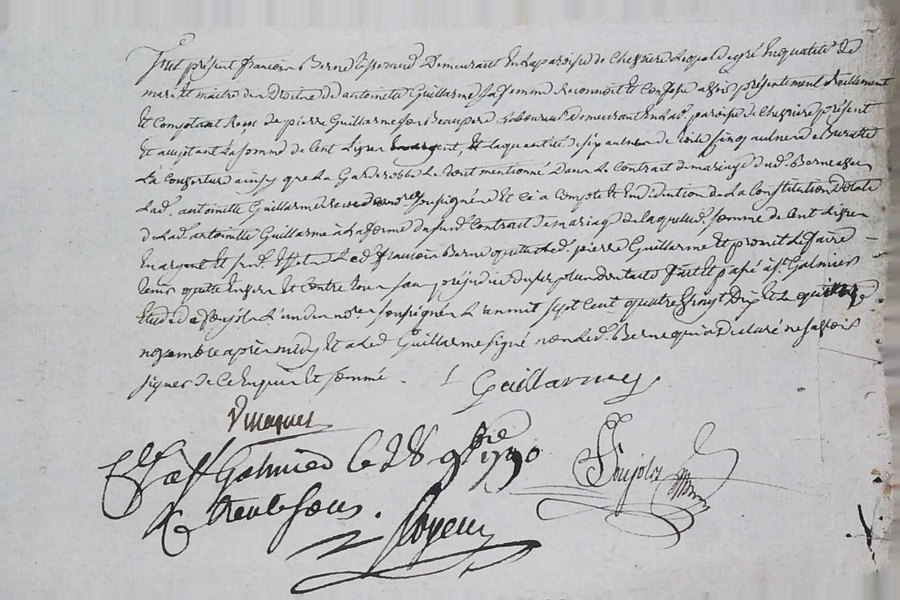 Fut présent francois Berne tisserand Demeurant En la paroisse de Chevriere Leopold et gré En qualité de
mari et maitre des Droits de antoinette Guillarme sa femme Reconnoit et Confesse avoir présentement et réellement
Et Comptant Reçu de pierre Guillarme son Beaupere Laboureur demeurant En lad. paroisse de Chevriere présent
Et acceptant La somme de Cent Livres En argent, Et La quantité de six aulnes de toile cinq aulnes
La Couverture ainsy que La Garderobe Le tout mentionné Dans Le Contrat de mariage dud. Berne avec
Lad. antoinette Guillarme Reçu de nore soussigné Et Ce a Compte Et En déduction de La Constitution Dotale
de Lad. antoinette Guillarme a La forme du susd. Contrat de mariage De laquelle somme de Cent Livres
En argent et Led. francois Berne quitte Led. pierre Guillarme Et promet Le faire
tenir quitte Envers Et Contre tous sans préjudice du surplus de ses droits fait Et passé a St Galmier
Etude de fonjols L'un des nores soussignés L'an mil sept Cent quatre vingt Dix Et Le quinze
novembre après midy Et a Led. Guillarme signé non Led. Berne qui a Déclaré ne savoir
signer de Ce Enquis Et sommé.
Guillarme
Clé a St Galmier le 28 9bre 1790
R trente sous.